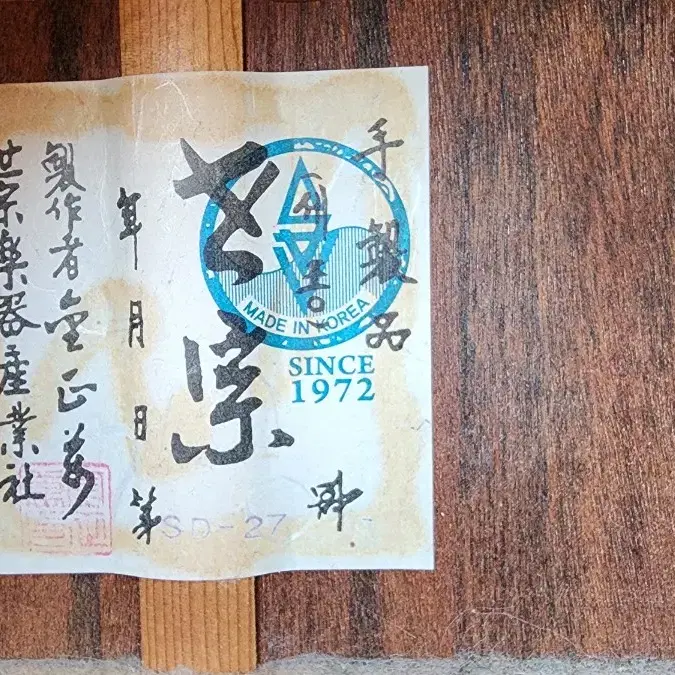 手製品
MADE IN KOREA
SINCE
1972
世宗
年月日
第 SD-27 號
製作者 金正
世宗樂器産業社